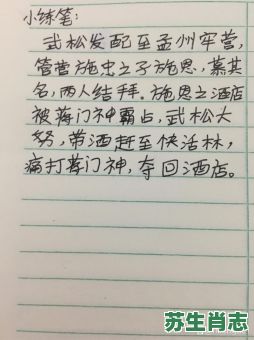 小练笔:
武松发配至孟州牢营,
管营施忠之子施恩,慕其
名,两人结拜。施恩之酒店
被蒋门神霸占,武松大
努,带酒赶至快活林,
痛打蒋门神,夺回酒店。
苏生肖志